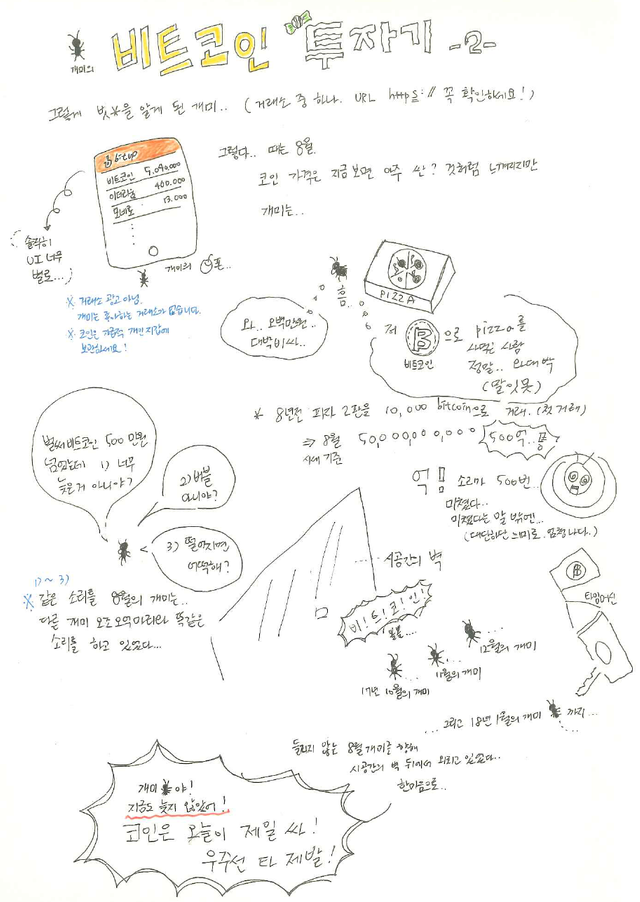 개미의 비트코인 투자기 -2-
그렇게 빗*을 알게 된 개미.. (거래소 중 하나. URL https:// 꼭 확인하세요!)
비트코인 5,090,000
이더리움 400,000
모네로 13,000
솔직히
UI 너무
별로...
개미의 폰..
※ 거래소 광고 아님.
개미는 투자하는 거래소가 없습니다.
※ 코인은 가급적 개인지갑에
보관하세요!
그렇다.. 때는 8월
코인 가격은 지금보면 아주 싼? 것처럼 느껴지지만
개미는...
흠
PIZZA
와.. 오백만원..
대박비싸..
저 B 으로 pizza를
비트코인
사먹은 사람
정말.. 와대박
(말잇못)
* 8년전 피자 2판을 10,000 bitcoin으로 거래. (첫 거래)
⇒ 8월
시세 기준
500억..
벌써 비트코인 500만원
넘었는데 1) 너무
늦은거 아니야?
2) 버블
아니야?
3) 떨어지면
어떡해?
억! 소리가 500번..
미쳤다..
미쳤다는 말 밖엔...
(대단하단 느낌으로..)
시공간의 벽
비!트!코!인!
타임머신
1) ~ 3)
※ 같은 소리를 8월의 개미는..
다른 개미 오조오억마리와 똑같은
소리를 하고 있었다...
12월의 개미
11월의 개미
17년 10월의 개미
... 그리고 18년 1월의 개미 까지...
들리지 않는 8월개미를 향해
시공간의 벽 뒤에서 외치고 있었다..
한마음으로..
개미야!
지금도 늦지 않았어!
코인은 오늘이 제일 싸!
우주선 타 제발!